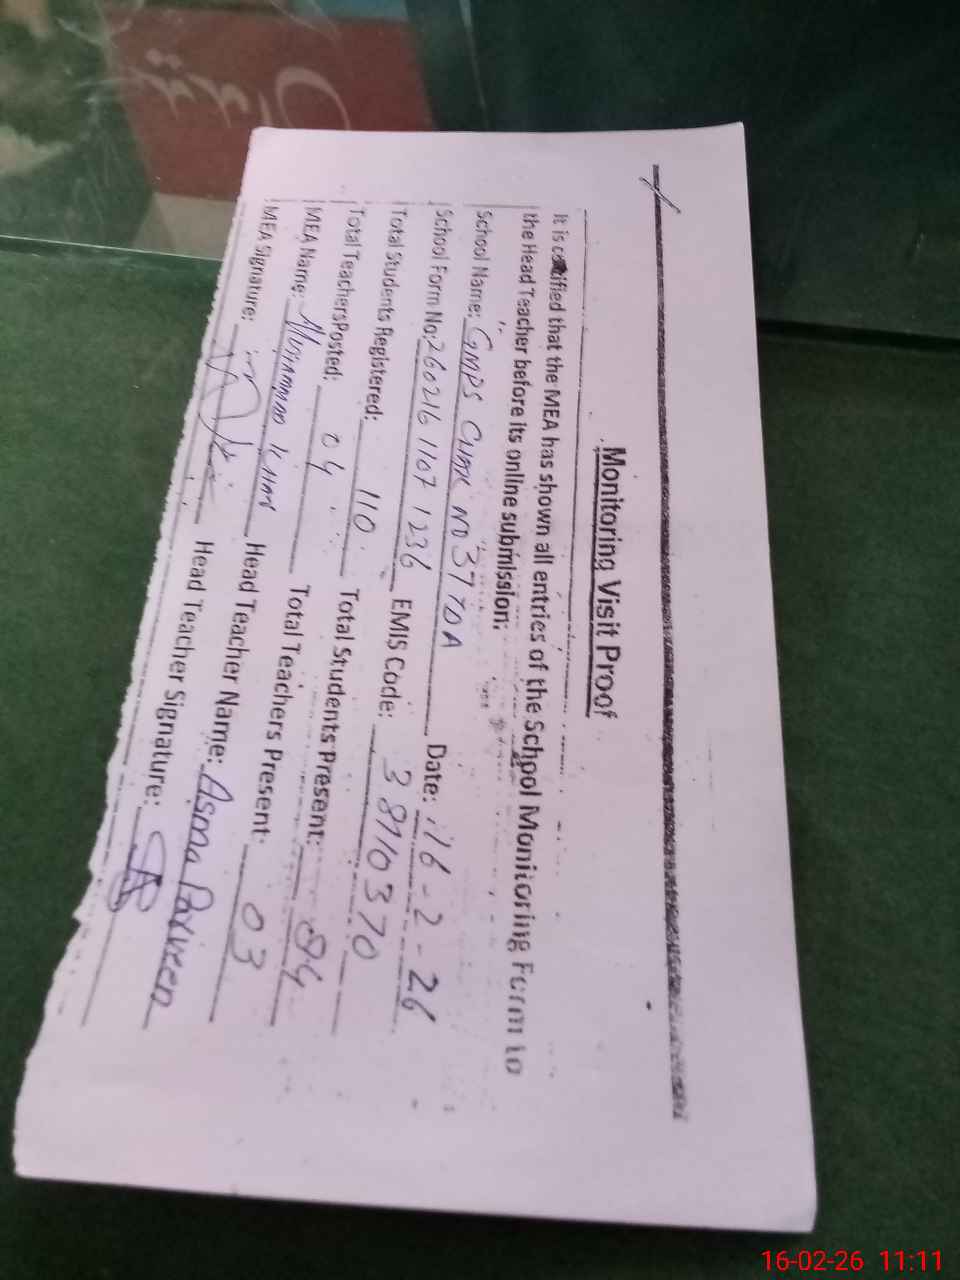 Monitoring Visit Proof
It is certified that the MEA has shown all entries of the School Monitoring Form to
the Head Teacher before its online submission:
School Name: GMPS CHAK NO 37 TDA Date: 16-2-26
School Form No: 260216 1107 1236 EMIS Code: 38710370
Total Students Registered: 110 Total Students Present: 94
Total Teachers Posted: 04 Total Teachers Present: 03
MEA Name: Muhammad Khan Head Teacher Name: Asma Parveen
MEA Signature: Head Teacher Signature:
16-02-26 11:11